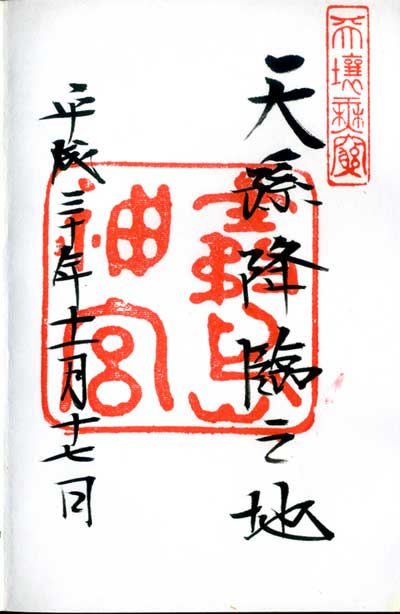 天壤無窮
天孫降臨之地
霧島
神宮
平成三十年十一月十七日